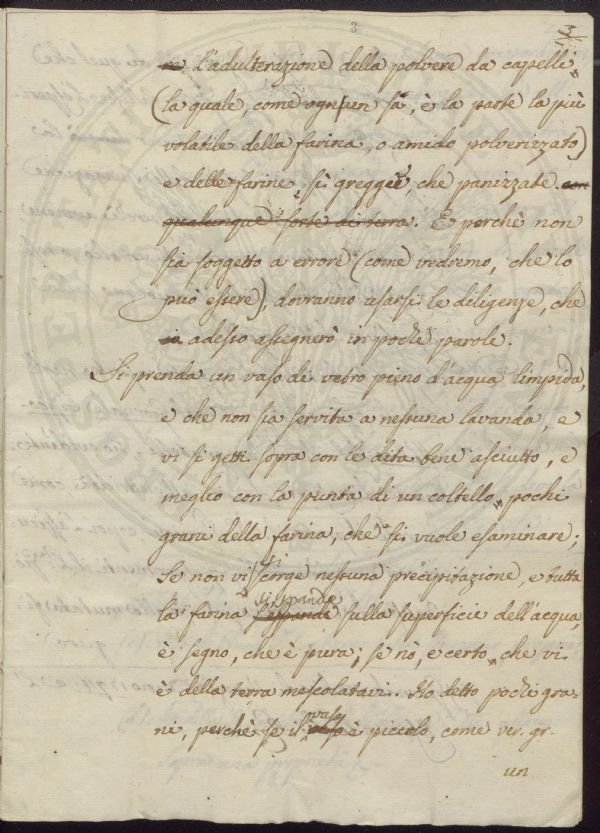 3
l'adulterazione della polvere da capelli
(la quale, come ognun sa, è la parte la più
volatile della farina, o amido polverizzato)
e delle farine, sì greggie, che panizzate con
qualunque sorte di terra. E perchè non
sia soggetto a errore (come vedremo, che lo
può essere), dovranno usarsi le diligenze, che
in adesso assegnerò in pochi parole.
Si prenda un vaso di vetro pieno d'acqua limpida,
e che non sia servita a nessuna lavanda, e
vi si getti sopra con le dita bene asciutto, e
meglio con la punta di un coltello, pochi
grani della farina, che si vuole esaminare;
Se non vi si scorge nessuna precipitazione, e tutta
la farina si spande sulla superficie dell'acqua,
è segno, che è pura; se nò, è certo, che vi
è della terra mescolatavi. Ho detto pochi gra-
ni, perchè se il vaso è piccolo, come ver. gr.
un